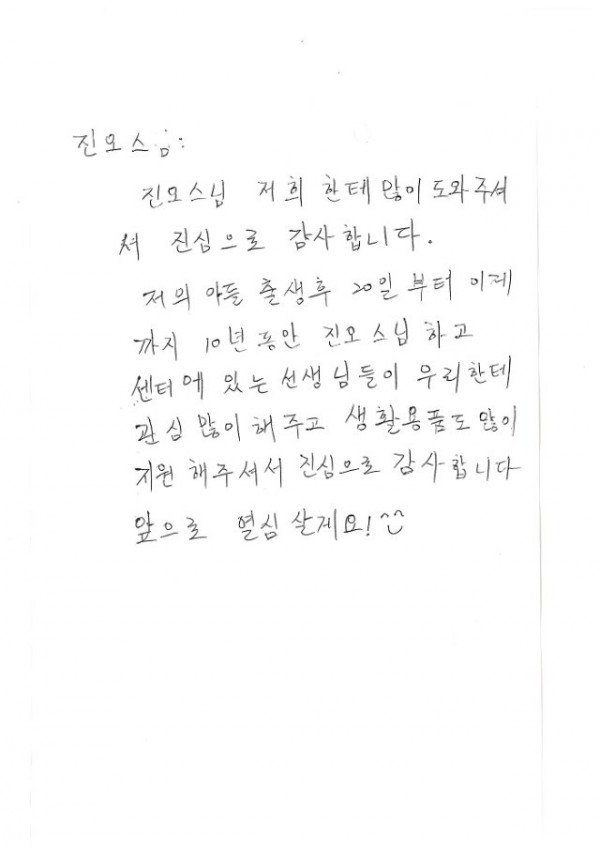 진오스님:
진오스님 저희 한테 많이 도와주셔
셔 진심으로 감사합니다.
저의 아들 출생후 20일 부터 이제
까지 10년 동안 진오 스님 하고
센터에 있는 선생님들이 우리한테
관심 많이 해 주고 생활용품도 많이
지원 해주셔서 진심으로 감사합니다
앞으로 열심 살게요! ^^